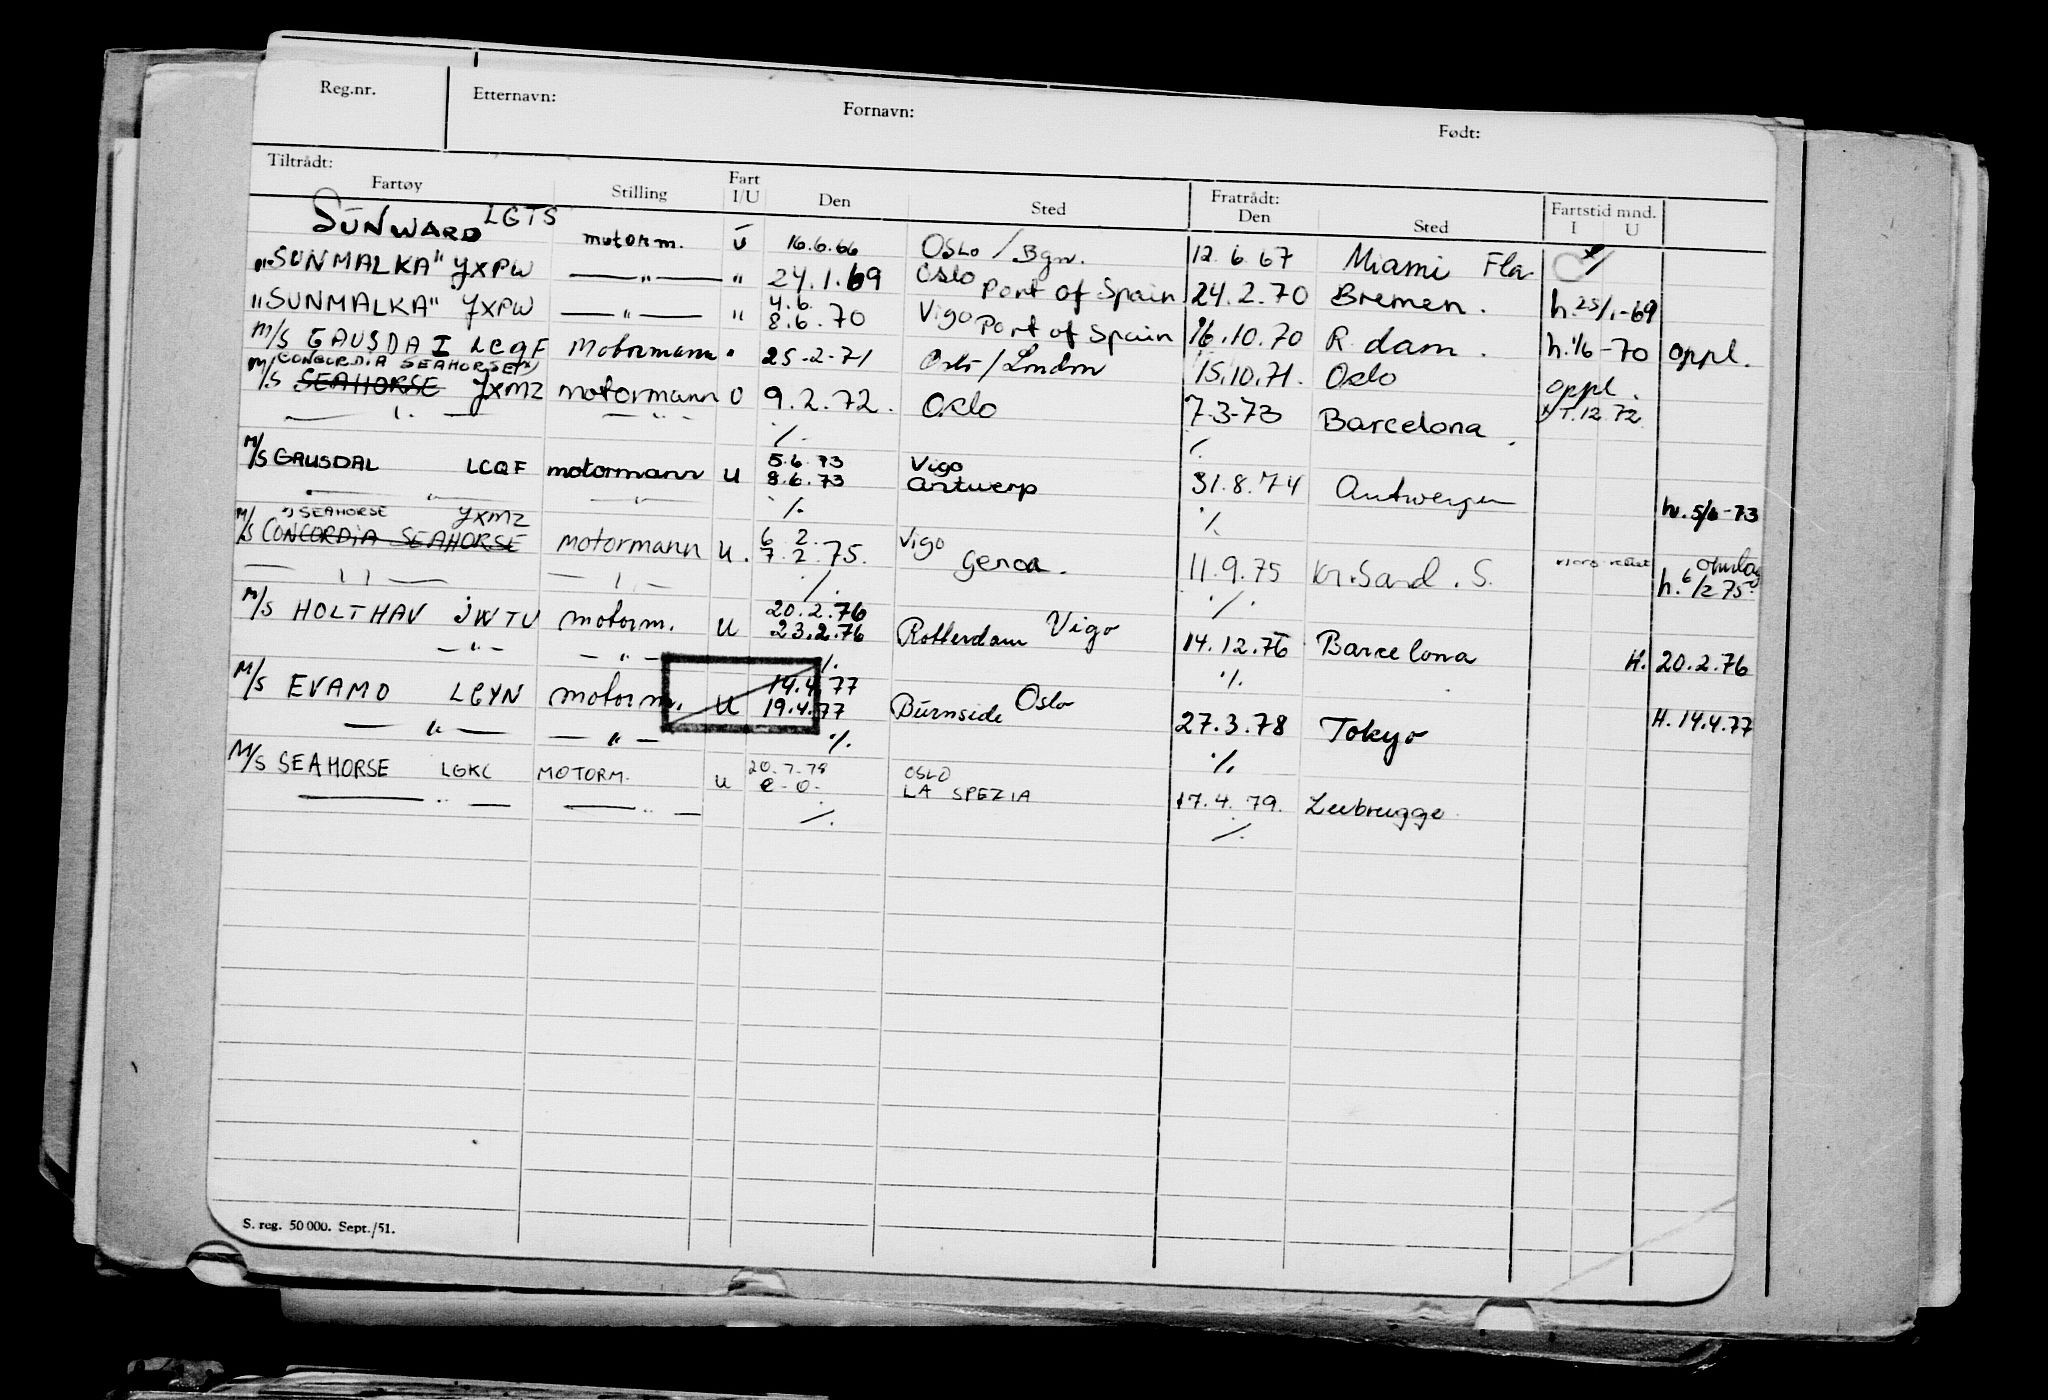 Reg.nr. Etternavn: Fornavn: Født:
Tiltrådt: Fratrådt: Fartstid mnd.
Fartøy Stilling Fart I/U Den Sted Den Sted I U
SUNWARD LGTS motorm. U 16.6.66 Oslo / Bgn. 12.6.67 Miami Fla
"SUNMALKA" JXPW —"— " 24.1.69 Oslo Port of Spain 24.2.70 Bremen. h.25/1-69
"SUNMALKA" JXPW —"— " 4.6. 8.6.70 Vigo Port of Spain 16.10.70 R.dam. h.1/6-70 oppl.
M/S GAUSDAL LCQF Motormann " 25-2-71 Oslo/London 15.10.71. Oslo oppl.
M/S CONCORDIA SEAHORSE
M/S SEAHORSE JXMZ motormann U 9.2.72. Oslo 7.3-73 Barcelona. T.12.72
—"— —"— ·/. ·/.
M/S GAUSDAL LCQF motormann U 5.6.73 8.6.73 Vigo Antwerp 31.8.74 Antwerpen h.5/6-73
—"— —"— ·/. ·/.
SEAHORSE JXMZ
M/S CONCORDIA SEAHORSE motormann U. 6.2. 7.2.75. Vigo Genoa. 11.9.75 Kr.Sand.S. h.6/2 75
—"— —"— ·/. ·/.
M/S HOLTHAV JWTU motorm. U 20.2.76 23.2.76 Rotterdam Vigo 14.12.76 Barcelona H. 20.2.76
—"— —"— ·/. ·/.
M/S EVAMO LGYN motorm. U 14.4.77 19.4.77 Burnside Oslo 27.3.78 Tokyo H.14.4.77
—"— —"— ·/. ·/.
M/S SEAHORSE LGKC MOTORM. U 20.7.78 OSLO LA SPEZIA 17.4.79. Zeebrugge
—"— —"— ·/. ·/.
S. reg. 50 000. Sept./51.